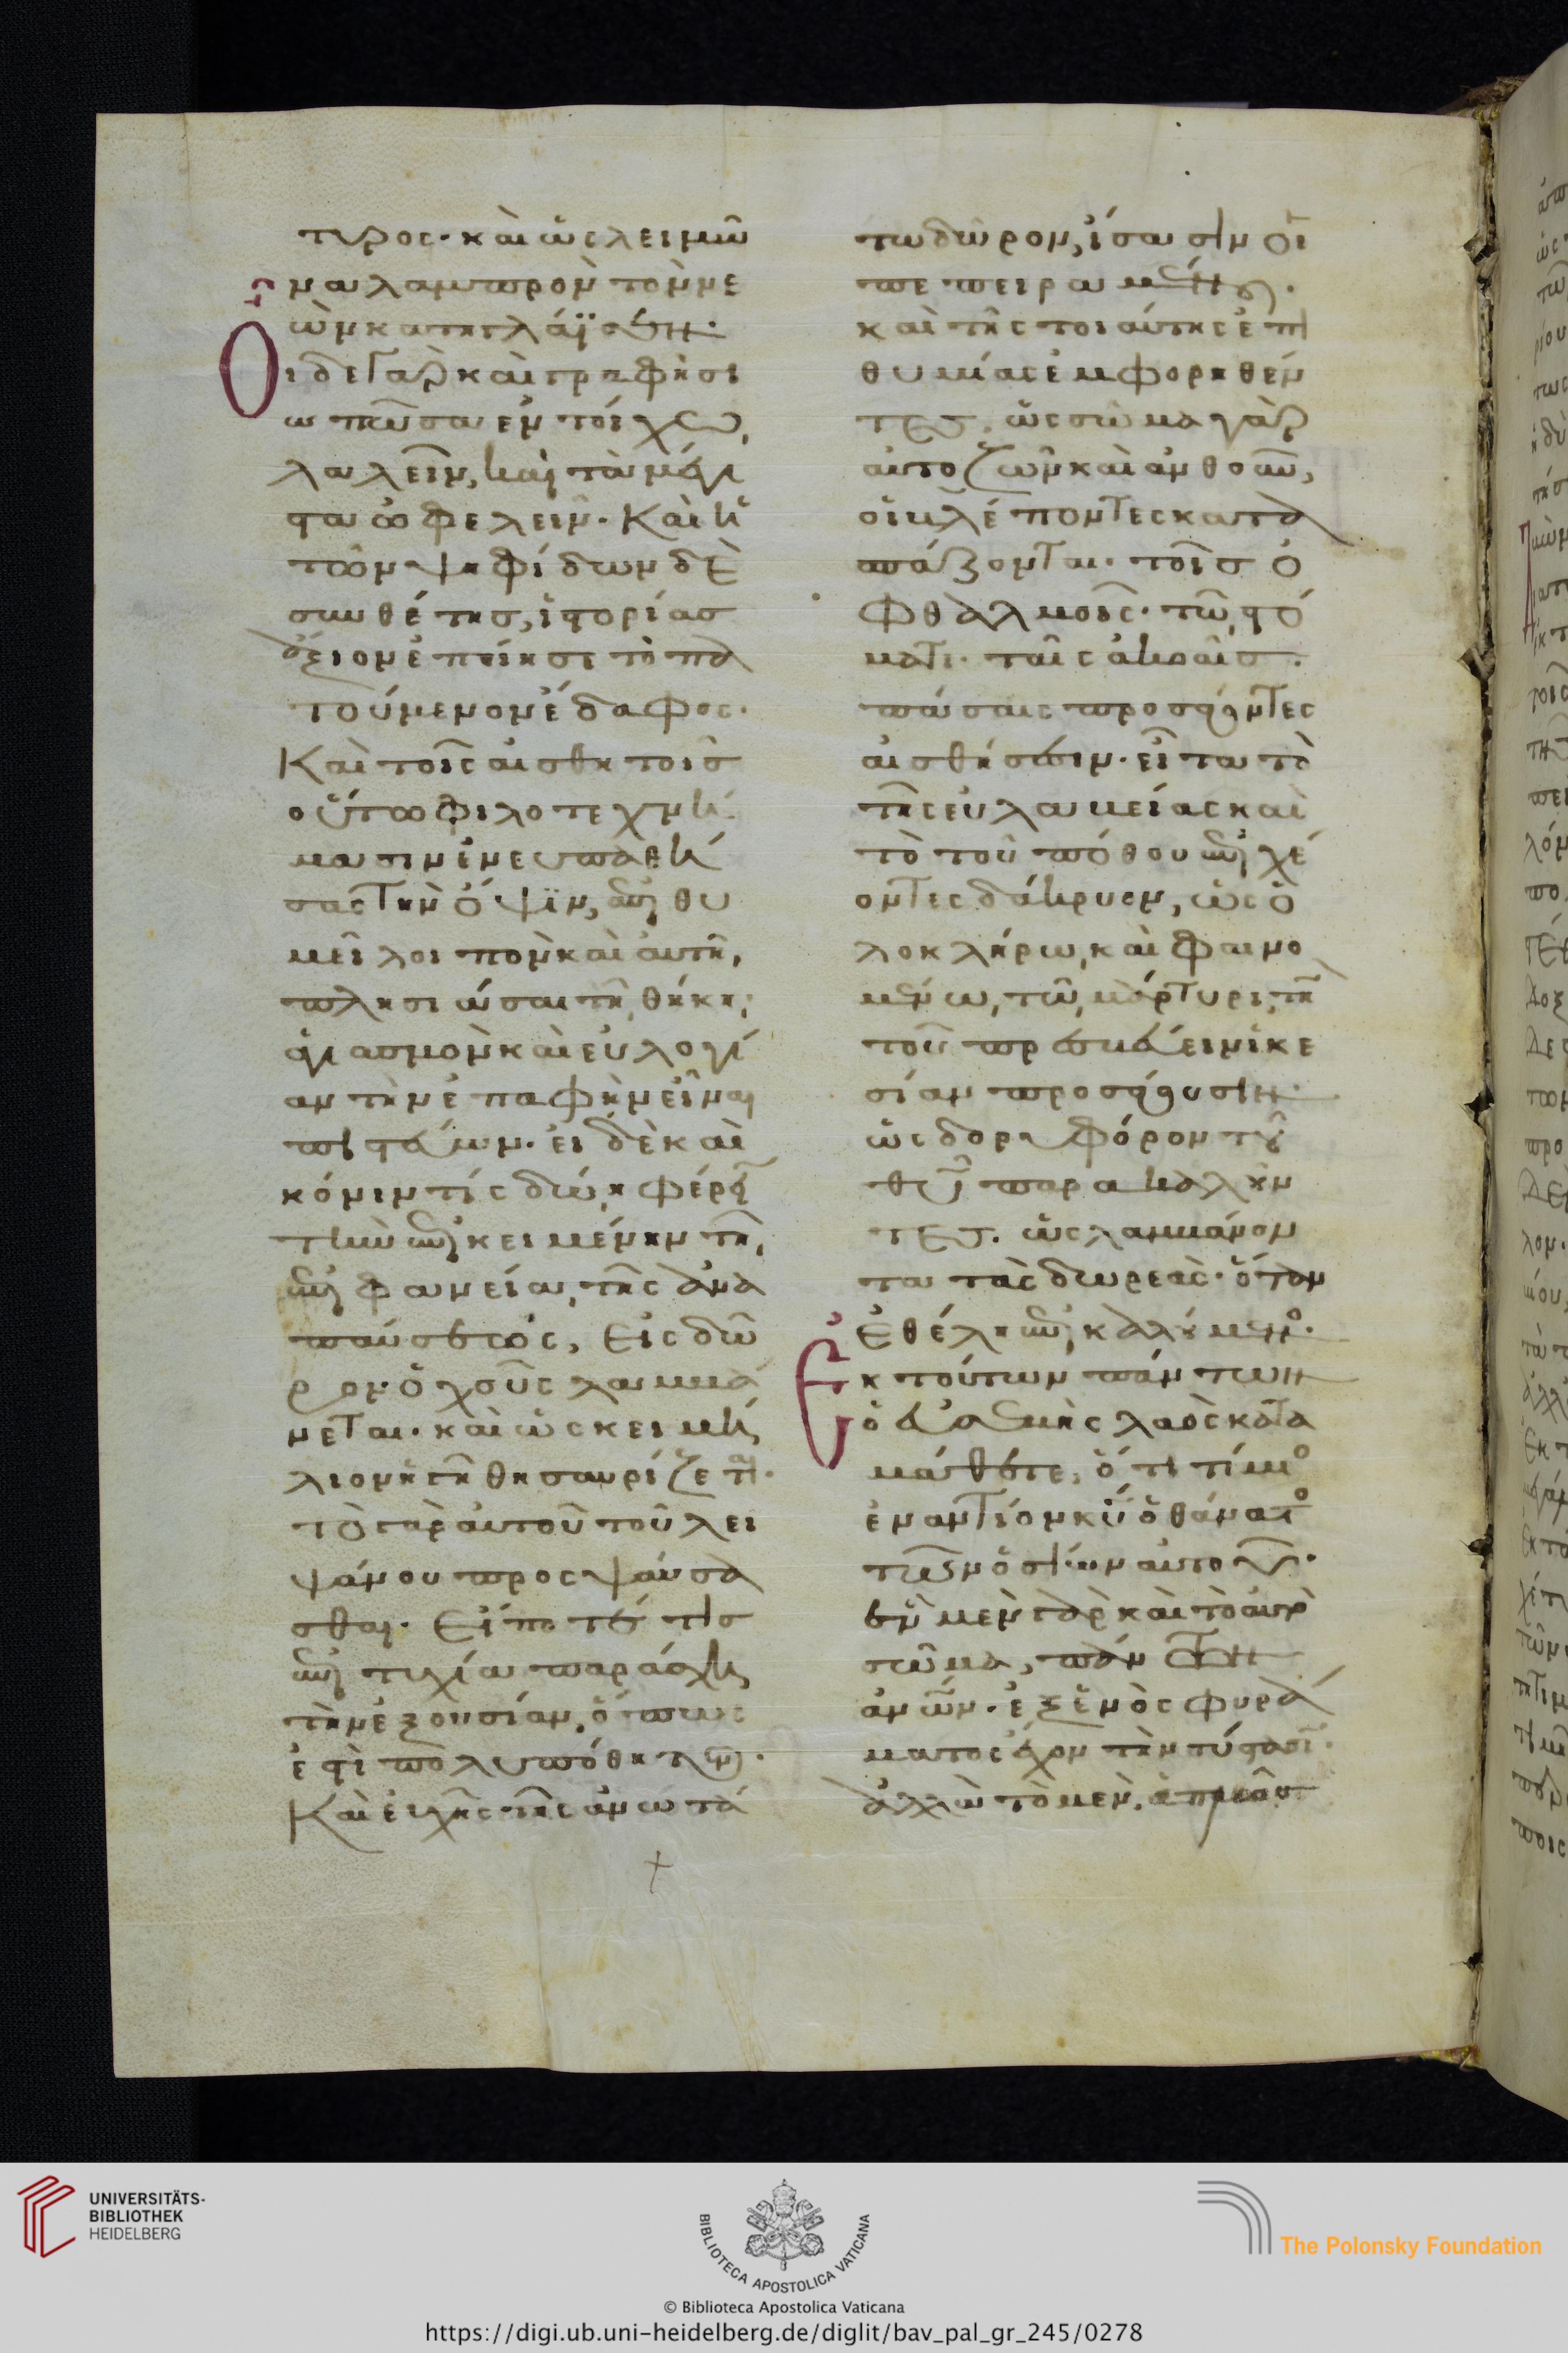 τυρος· καὶ ὡς λειμῶ
να λαμπρὸν τὸν νε
ὼν κατηγλάϊσεν·
Οἶδε γὰρ καὶ γραφὴ σι
ωπῶσα ἐν τοίχω,
λαλεῖν, καὶ τὰ μέγι
στα ὠφελεῖν. Καὶ ὁ
τῶν ψηφίδων δὲ
συνθέτης, ἱστορίας
ἄξιον ἐποίησε τὸ πα
τούμενον ἔδαφος.
Καὶ τοῖς αἰσθητοῖς
οὕτω φιλοτεχνή
μασιν ἐνευπαθή
σας τὴν ὄψιν, ἐπιθυ
μεῖ λοιπὸν καὶ αὐτῆ,
πλησιάσαι τῆ θήκη;
ἁγιασμὸν καὶ εὐλογί
αν τὴν ἐπαφὴν εἶναι
πιστεύων. εἰ δὲ καὶ
κόνιν τίς δώη φέρειν
τὴν ἐπικειμένην τῆ,
ἐπιφανεία, τῆς ἀνα
παύσεως, εἰς δῶ
ρον ὁ χοῦς λαμβά
νεται. καὶ ὡς κειμή
λιον ἡ γῆ θησαυρίζεται.
τὸ γὰρ αὐτοῦ τοῦ λει
ψάνου προσψαύσα
σθαι. Εἴ ποτέ τις
ἐπιτυχία παράσχη
τὴν ἐξουσίαν, ὅπως
ἐστὶ πολυπόθητον.
Καὶ εὐχῆς τῆς ἀνωτά
τω δῶρον, ἴσασιν οἱ
πεπειραμένοι.
καὶ τῆς τοιαύτης ἐπι
θυμίας ἐμφορηθέν
τες. ὡς σῶμα γὰρ
αὐτὸ ζῶν καὶ ἀνθοῦν,
οἱ βλέποντες κατα
σπάζονται. τοῖς ὀ
φθαλμοῖς. τῶ στό
ματι. ταῖς ἀκοαῖς.
πάσαις προσάγοντες
αἰσθήσεσιν. εἶτα τὸ
τῆς εὐλαβείας καὶ
τὸ τοῦ πόθου ἐπιχέ
οντες δάκρυον, ὡς ὁ
λοκλήρω, καὶ φαινο
μένω, τῶ μάρτυρι, τὴν
τοῦ πρεσβεύειν ἱκε
σίαν προσάγουσιν·
ὡς δορυφόρον τοῦ
θῦ παρακαλοῦν
τες. ὡς λαμβάνον
τα τὰς δωρεὰς· ὅταν
ἐθέλη ἐπικαλούμενον.
Ἐκ τούτων πάντων
ὁ εὐσεβὴς λαὸς κατα
μάθετε, ὅτι τίμιος
ἐναντίον κῦ ὁ θάνατος
τῶν ὁσίων αὐτοῦ.
ἓν μὲν γὰρ καὶ τὸ αὐτὸ
σῶμα, πάντων
ἀνῶν. ἐξ ἑνὸς φυρά
ματος ἔχον τὴν σύστασιν.
ἀλλὰ τὸ μὲν, ἁπλῶς
UNIVERSITÄTS-
BIBLIOTHEK
HEIDELBERG
BIBLIOTECA APOSTOLICA VATICANA
The Polonsky Foundation
© Biblioteca Apostolica Vaticana
https://digi.ub.uni-heidelberg.de/diglit/bav_pal_gr_245/0278